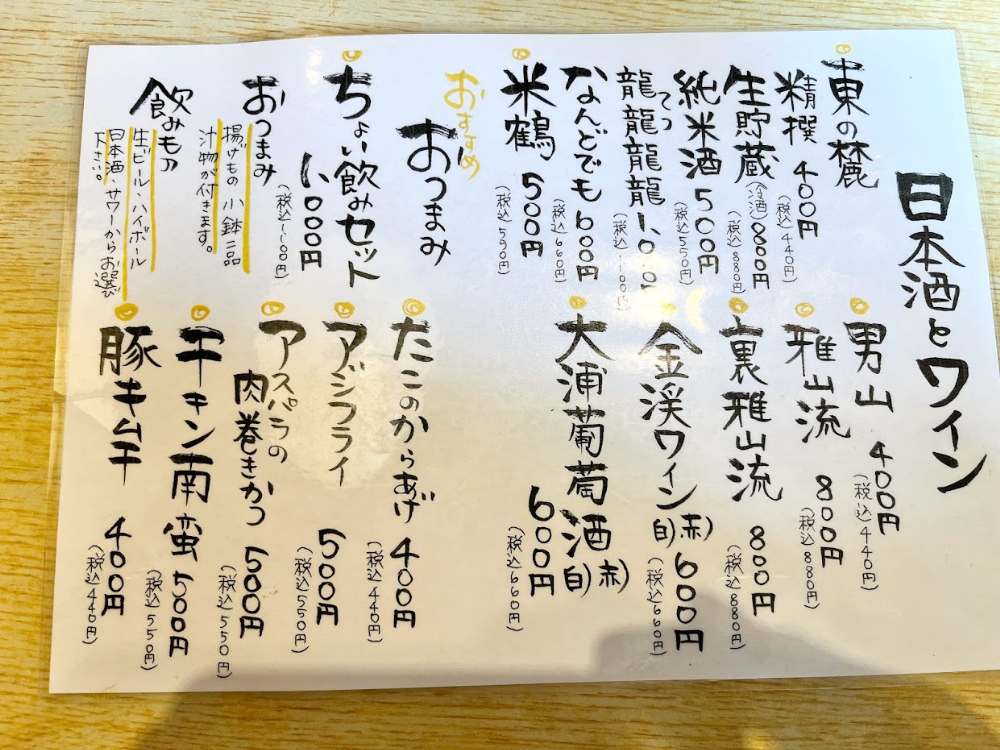 日本酒とワイン
東の麓
精撰 400円
(税込440円)
生貯蔵(冷酒) 800円
(税込880円)
純米酒 500円
(税込550円)
龍龍龍龍 1,000
てつ
(税込1100円)
なんどでも 600円
(税込660円)
米鶴 500円
(税込550円)
男山 400円
(税込440円)
雅山流 800円
(税込880円)
裏雅山流 800円
(税込880円)
金渓ワイン(赤)(白) 600円
(税込660円)
大浦葡萄酒(赤)(白) 600円
(税込660円)
おすすめ
おつまみ
ちょい飲みセット
1,000円
(税込1100円)
おつまみ
揚げもの 小鉢二品
汁物が付きます。
飲みもの
生ビール・ハイボール
日本酒・サワーからお選び
下さい。
たこのからあげ 400円
(税込440円)
アジフライ 500円
(税込550円)
アスパラの
肉巻きかつ 500円
(税込550円)
チキン南蛮 500円
(税込550円)
豚キムチ 400円
(税込440円)